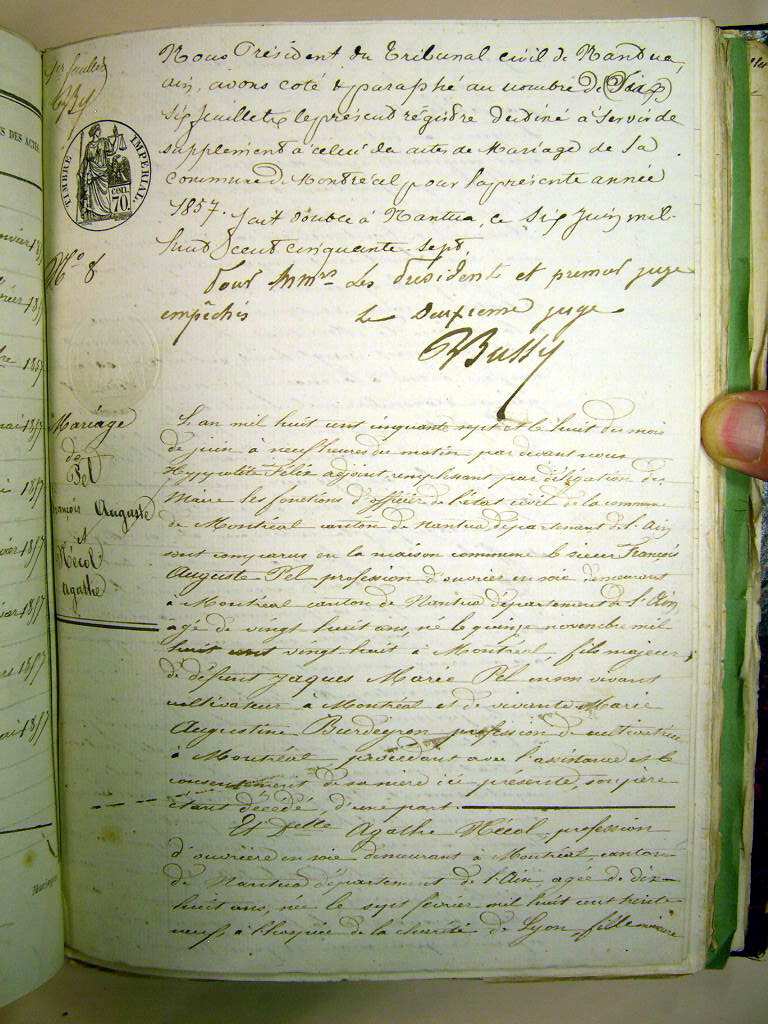 1er feuillet
Nous Président du Tribunal civil de Nantua,
ain, avons coté & paraphé au nombre de Six
six feuillets le présent régistre destiné à servir de
supplément à celui des actes de Mariage de la
commune de Montréal pour la présente année
1857. fait double à Nantua, ce Six Juin mil
huit cent cinquante-sept,
Pour MMrs Les Présidents et premier juge
empêchés Le deuxieme juge
TIMBRE IMPERIAL.
CENT.
70.
No 8
Mariage
de
Pel
François Auguste
et
Nécol
Agathe
L'an mil huit cent cinquante sept et le huit du mois
de juin à neuf heures du matin par devant nous
adjoint remplissant par délégation du
Maire les fonctions d'officier de l'état civil de la commune
de Montréal canton de Nantua département de l'Ain
sont comparus en la maison commune le sieur François
Auguste Pel profession d'ouvrier en soie demeurant
à Montréal canton de Nantua département de l'Ain
agé de vingt huit ans, né le quinze novembre mil
huit cent vingt huit à Montréal fils majeur
de défunt Jaques Marie Pel en son vivant
cultivateur à Montréal et de vivante Marie
Augustine Burdeyron profession de cultivatrice
à Montréal procédant avec l'assistance et le
consentement de sa mère ici présente, son père
étant décédé d'une part.
Et delle Agathe Nécol profession
d'ouvrière en soie demeurant à Montréal, canton
de Nantua département de l'Ain agée de dix-
huit ans, née le sept fevrier mil huit cent trente
neuf à l'hospice de la charité de Lyon, fille mineure
S DES ACTES